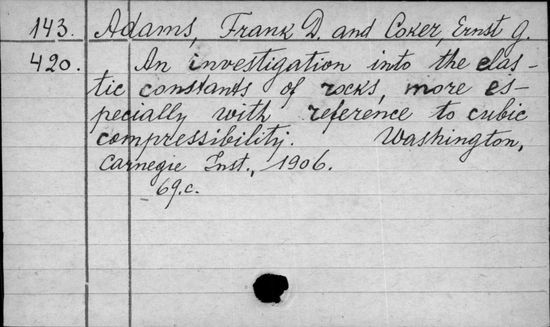 143. Adams, Frank D. and Coker, Ernst G.
420. An investigation into the elas-
tic constants of rocks, more es-
pecially with reference to cubic
compressibility. Washington,
Carnegie Inst., 1906.
69.c.